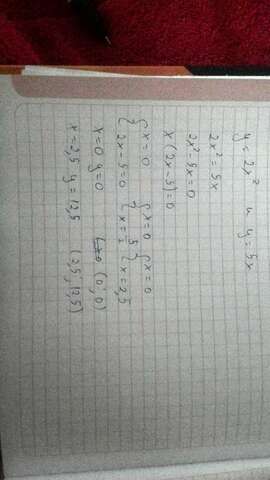 y = 2x² и y = 5x
2x² = 5x
2x² - 5x = 0
x(2x-5) = 0
{x = 0 {x = 0 {x = 0
{2x - 5 = 0 {x = 5/2 {x = 2,5
x = 0 y = 0 (0; 0)
x = 2,5 y = 12,5 (2,5; 12,5)